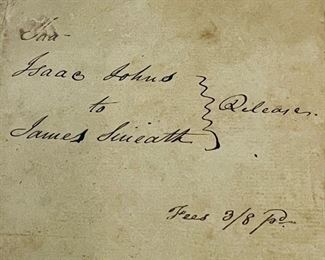 Isaac Johns
to } Release.
James Sineath
Fees 3/8 pd.